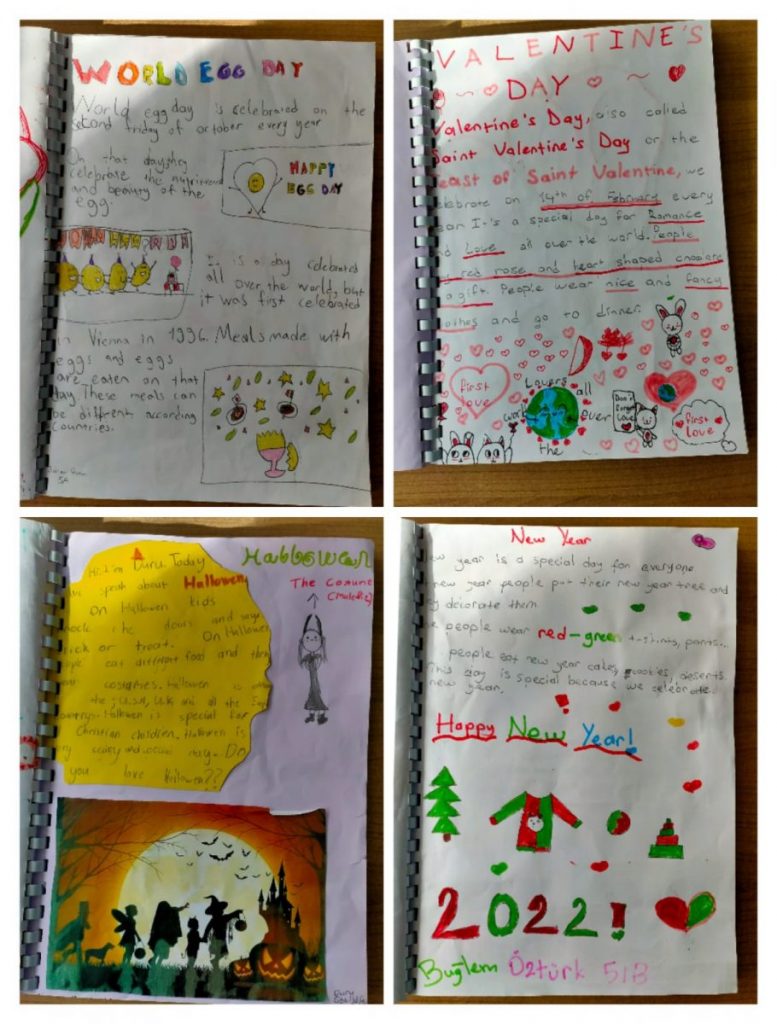 WORLD EGG DAY
World egg day is celebrated on the
second friday of october every year
On that day they
celebrate the nutriment
and beauty of the
egg.
HAPPY
EGG DAY
It is a day celebrated
all over the world, but
it was first celebrated
in Vienna in 1996. Meals made with
eggs and eggs
are eaten on that
day. These meals can
be diffrent according
countries.
5A
VALENTINE'S
DAY
Valentine's Day, also called
Saint Valentine's Day or the
Feast of Saint Valentine, we
celebrate on 14th of February every
It's a special day for Romance
Love all over the world. People
red rose and heart shaped
a gift. People wear nice and fancy
clothes and go to dinner.
first
love
Lovers all
over
the
Don't
forget
Love
first
love
Hi! I'm Duru. Today
speak about Halloween
On Hallowen kids
the doors and says
trick or treat. On Hallowen
eat different food and
costumes. Hallowen is
the U.S.A, U.K and all the
Hallowen is special for
Christian children. Hallowen is
scary and
you love Hallowen??
Hallowean
The
Duru
New Year
ew year is a special day for everyone
new year people put their new year tree and
ey decorate them
e people wear red-green t-shirts, pants...
people eat new year cakes, cookies, deserts.
This day is special because we celebrate
new year.
Happy New Year!
2022!
Buğlem Öztürk 5/B